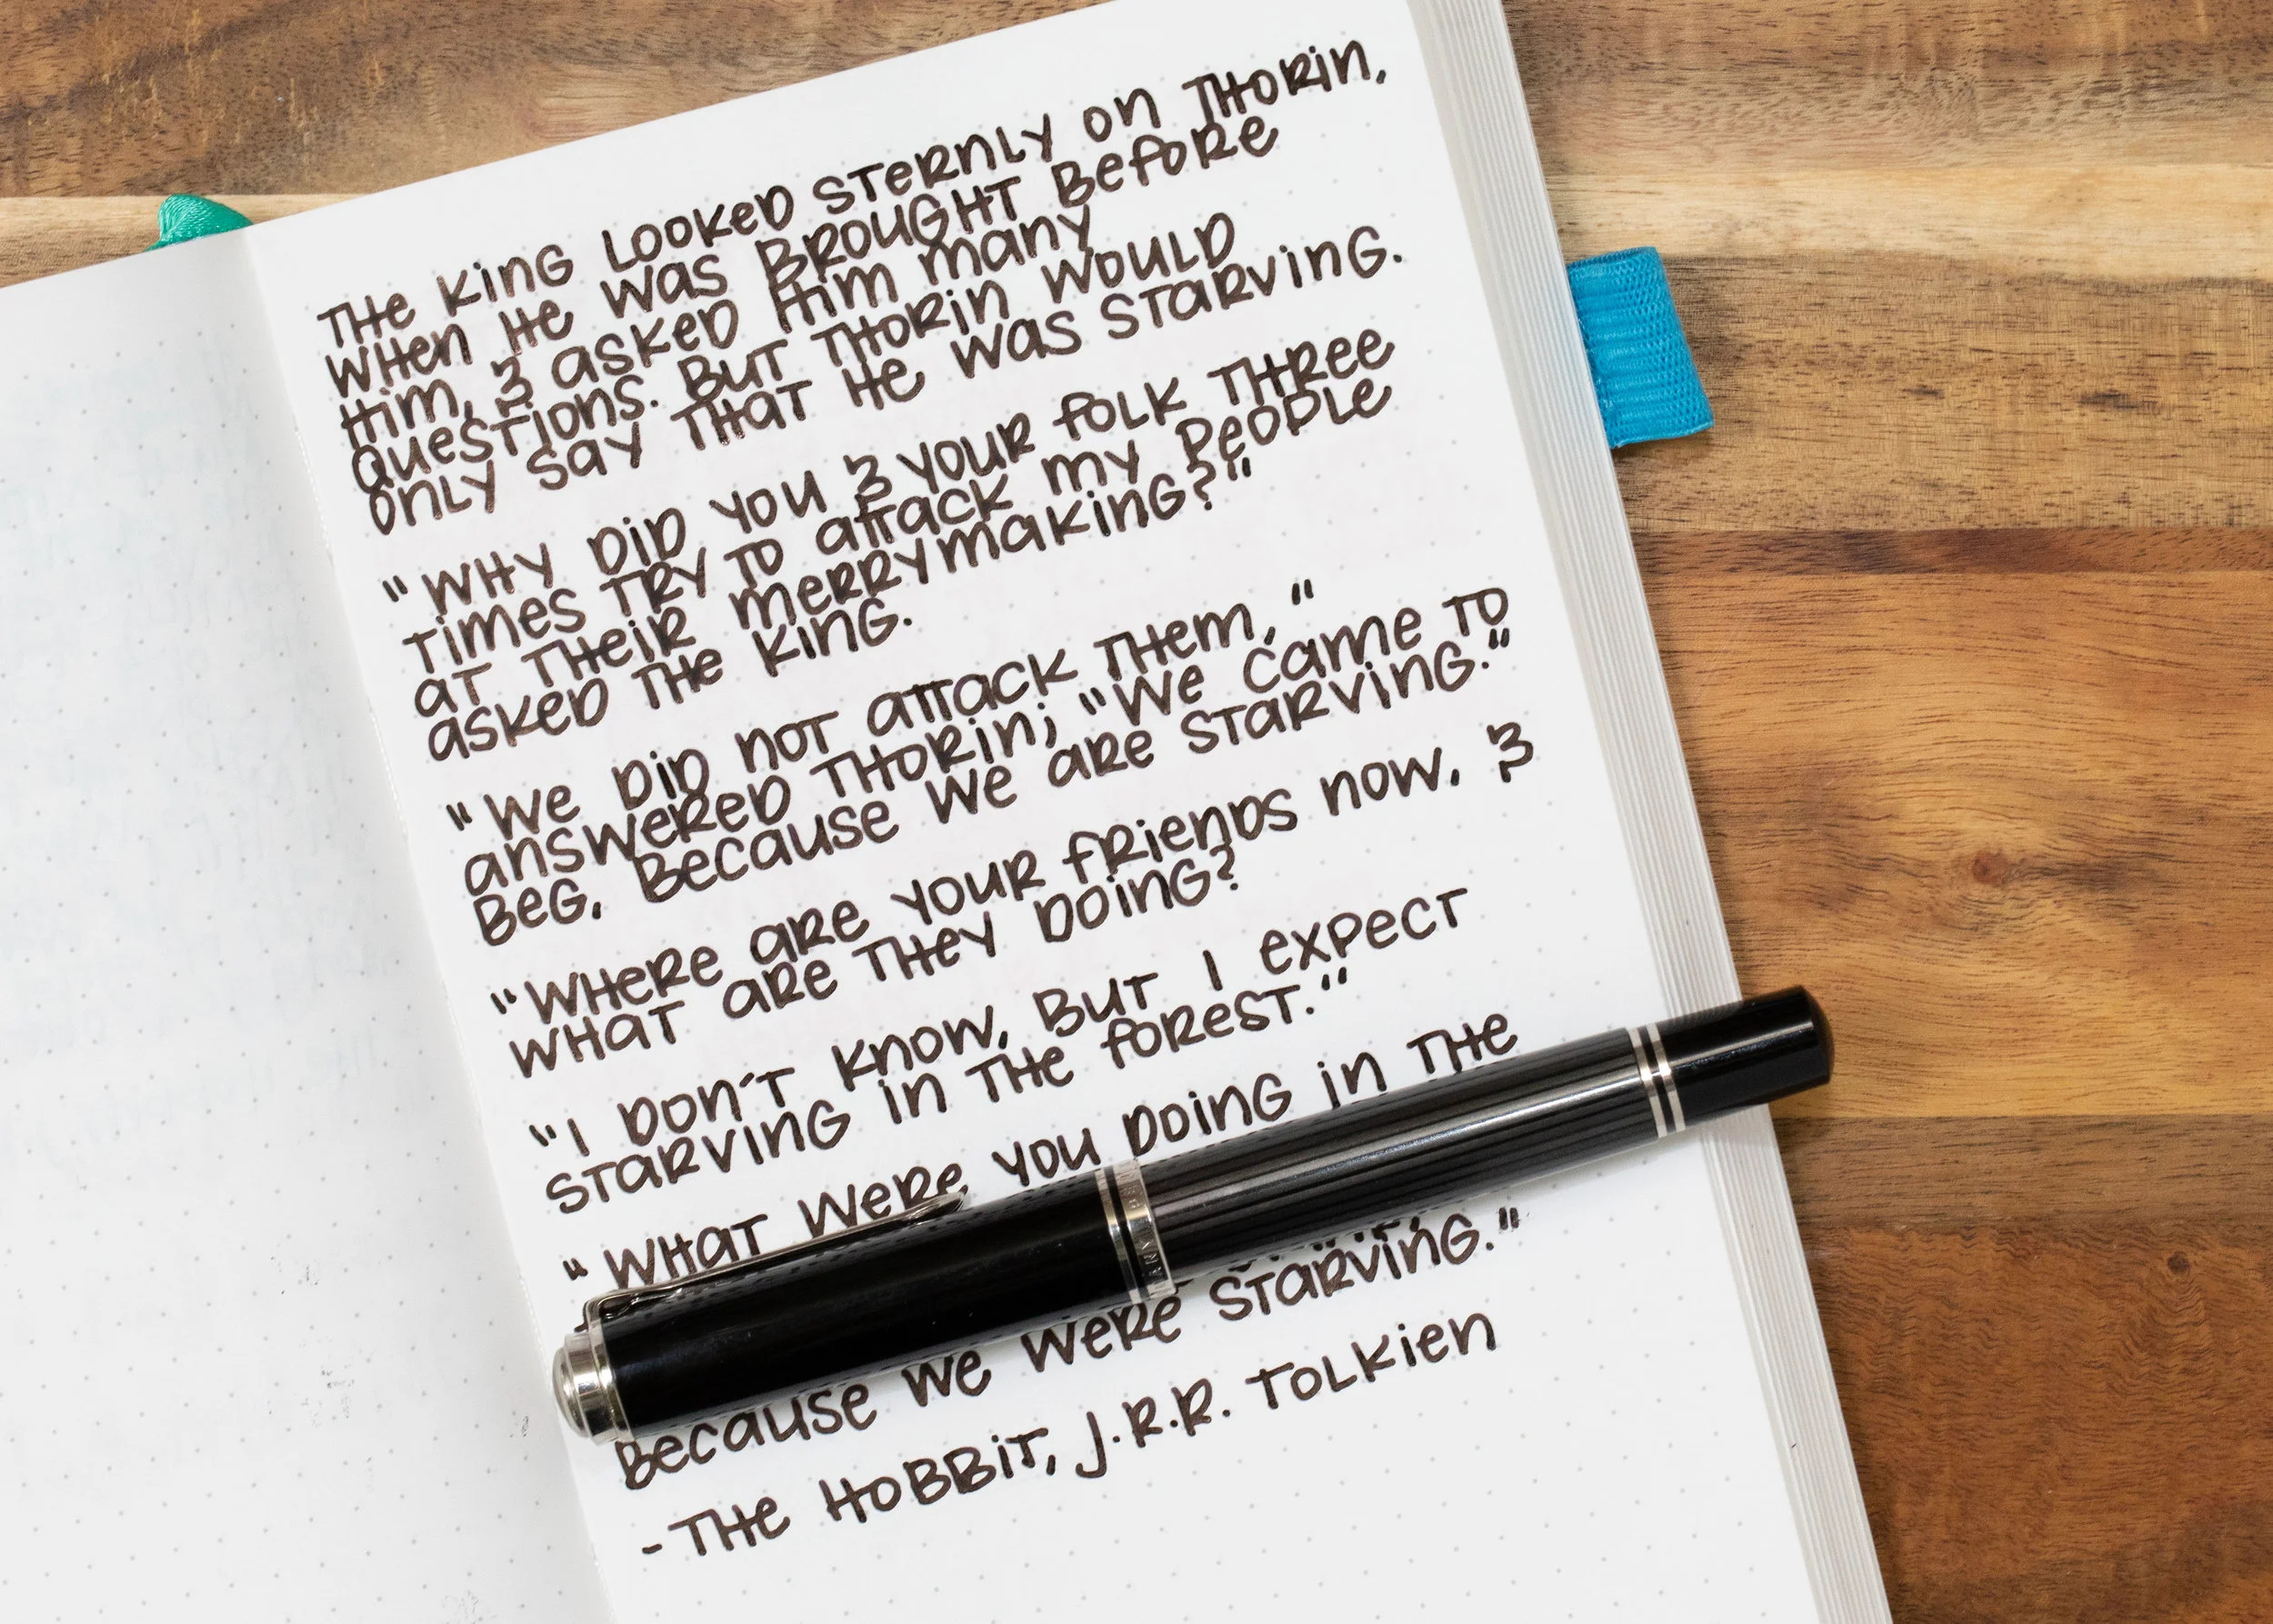 THE KING LOOKED STERNLY ON THORIN,
WHEN HE WAS BROUGHT BEFORE
HIM, & ASKED HIM MANY
QUESTIONS. BUT THORIN WOULD
ONLY SAY THAT HE WAS STARVING.
"WHY DID YOU & YOUR FOLK THREE
TIMES TRY TO ATTACK MY PEOPLE
AT THEIR MERRYMAKING?"
ASKED THE KING.
"WE DID NOT ATTACK THEM,"
ANSWERED THORIN; "WE CAME TO
BEG, BECAUSE WE ARE STARVING."
"WHERE ARE YOUR FRIENDS NOW, &
WHAT ARE THEY DOING?
"I DON'T KNOW, BUT I EXPECT
STARVING IN THE FOREST."
"WHAT WERE YOU DOING IN THE
BECAUSE WE WERE STARVING."
-THE HOBBIT, J.R.R. TOLKIEN